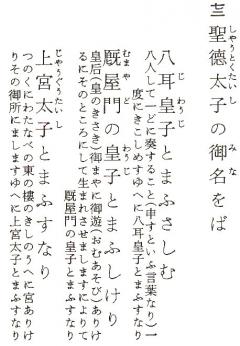 七三
聖德太子の御名をば
しやうとくたいし
みな
八耳皇子とまふさしむ
じ わうじ
八人して一どに奏すること(申すといふ言葉なり)一
度にきこしめすゆへに八耳皇子とまふすなり
厩屋門の皇子とまふしけり
むまや ど わうじ
皇后(皇のきさき)御まやに御遊(おむあそび)ありけ
るにそのところにして生れさせましますによりて
厩屋門の皇子とまふすなり
上宮太子とまふすなり
じやうぐうたいし
つのくにわたなべの東の樓のきしのうへに宮ありけ
りその御所にましますゆへに上宮太子とまふすなり